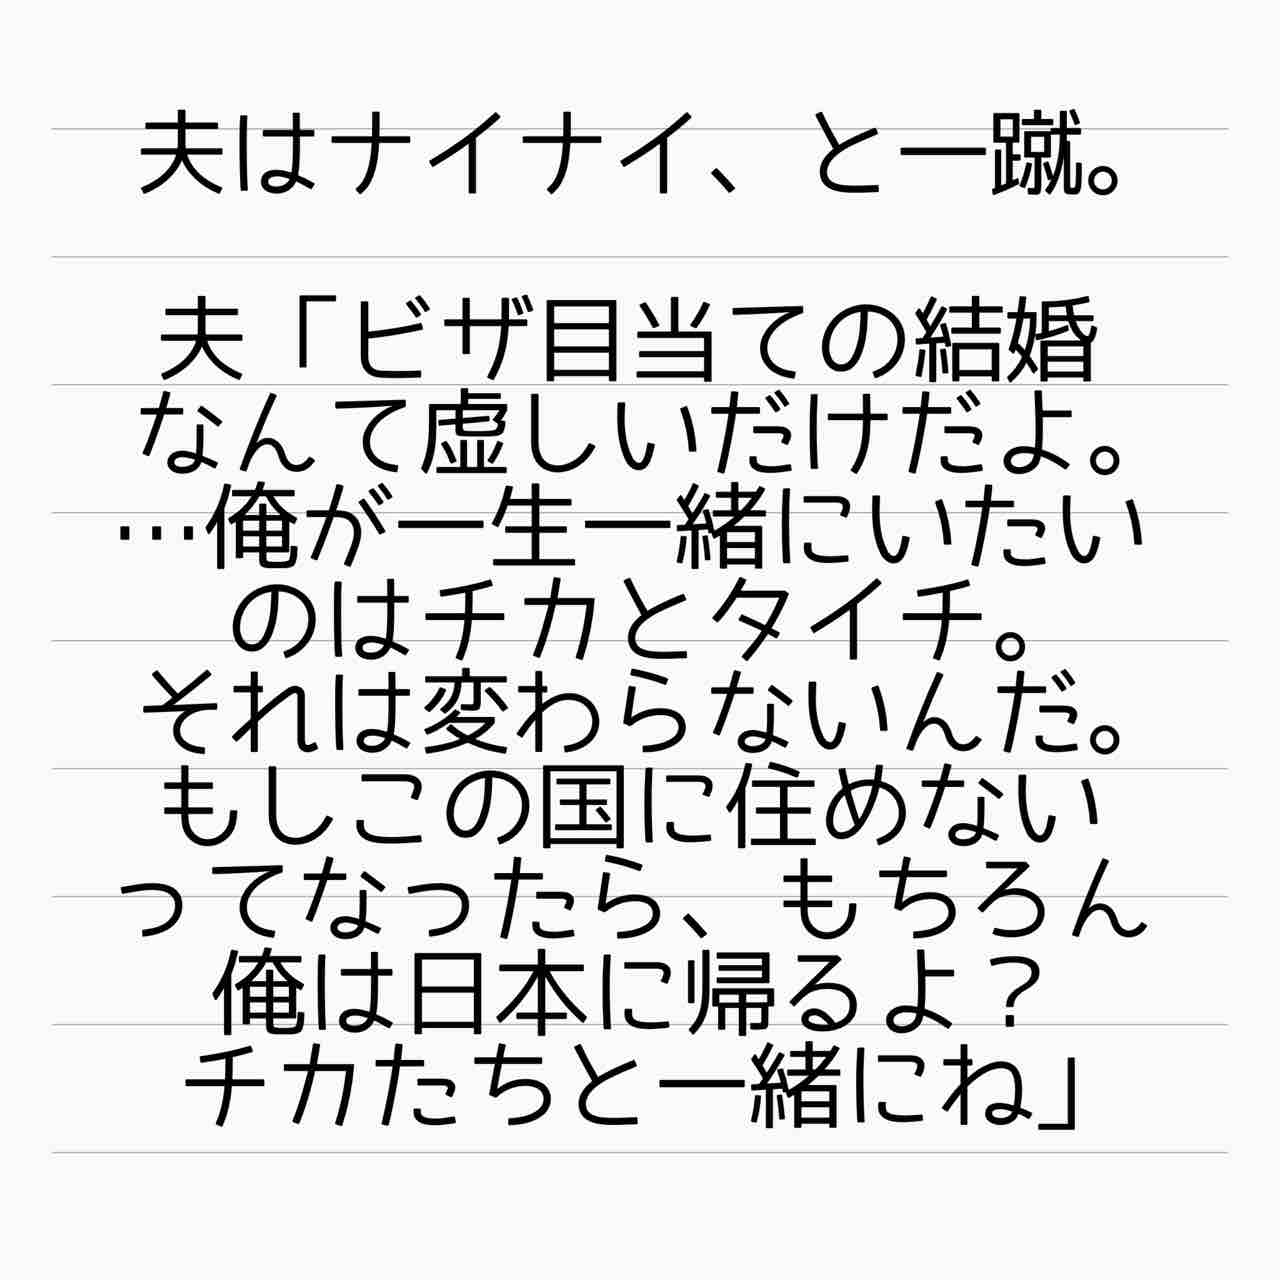 夫はナイナイ、と一蹴。
夫「ビザ目当ての結婚
なんて虚しいだけだよ。
…俺が一生一緒にいたい
のはチカとタイチ。
それは変わらないんだ。
もしこの国に住めない
ってなったら、もちろん
俺は日本に帰るよ？
チカたちと一緒にね」